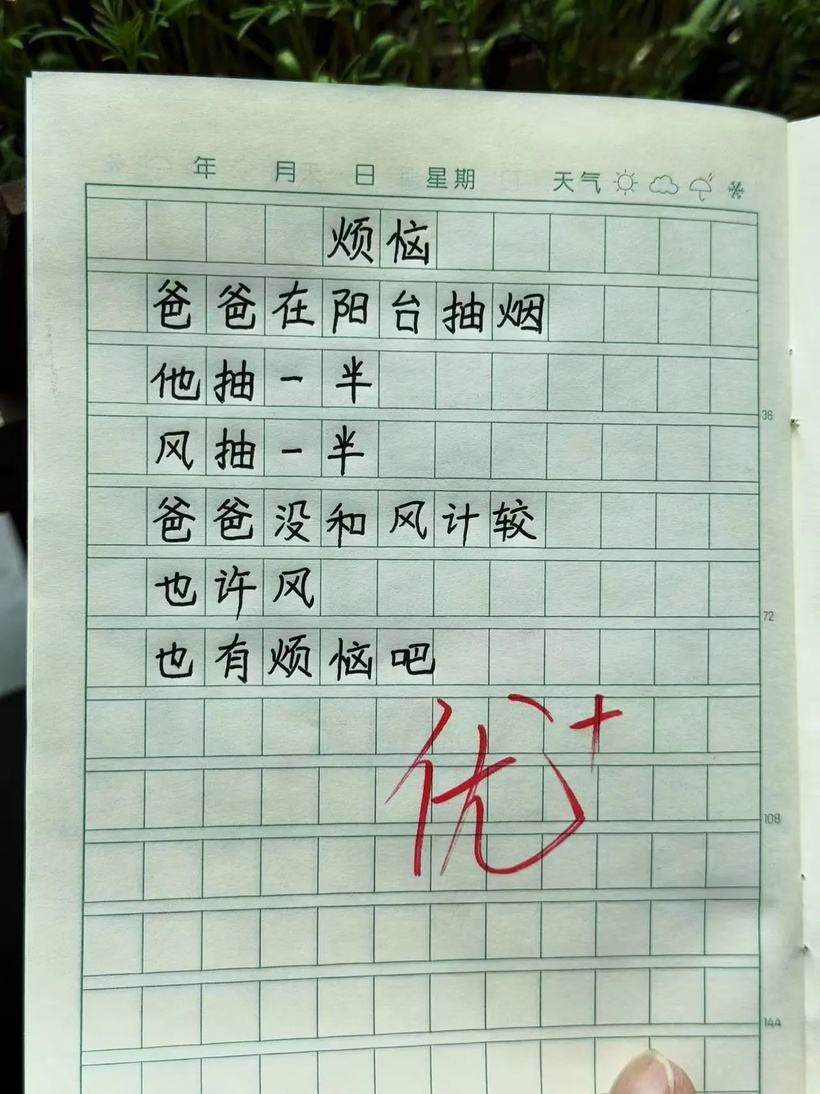 年 月 日 星期 天气
烦恼
爸爸在阳台抽烟
他抽一半
风抽一半
36
爸爸没和风计较
也许风
72
也有烦恼吧
优+
108
144